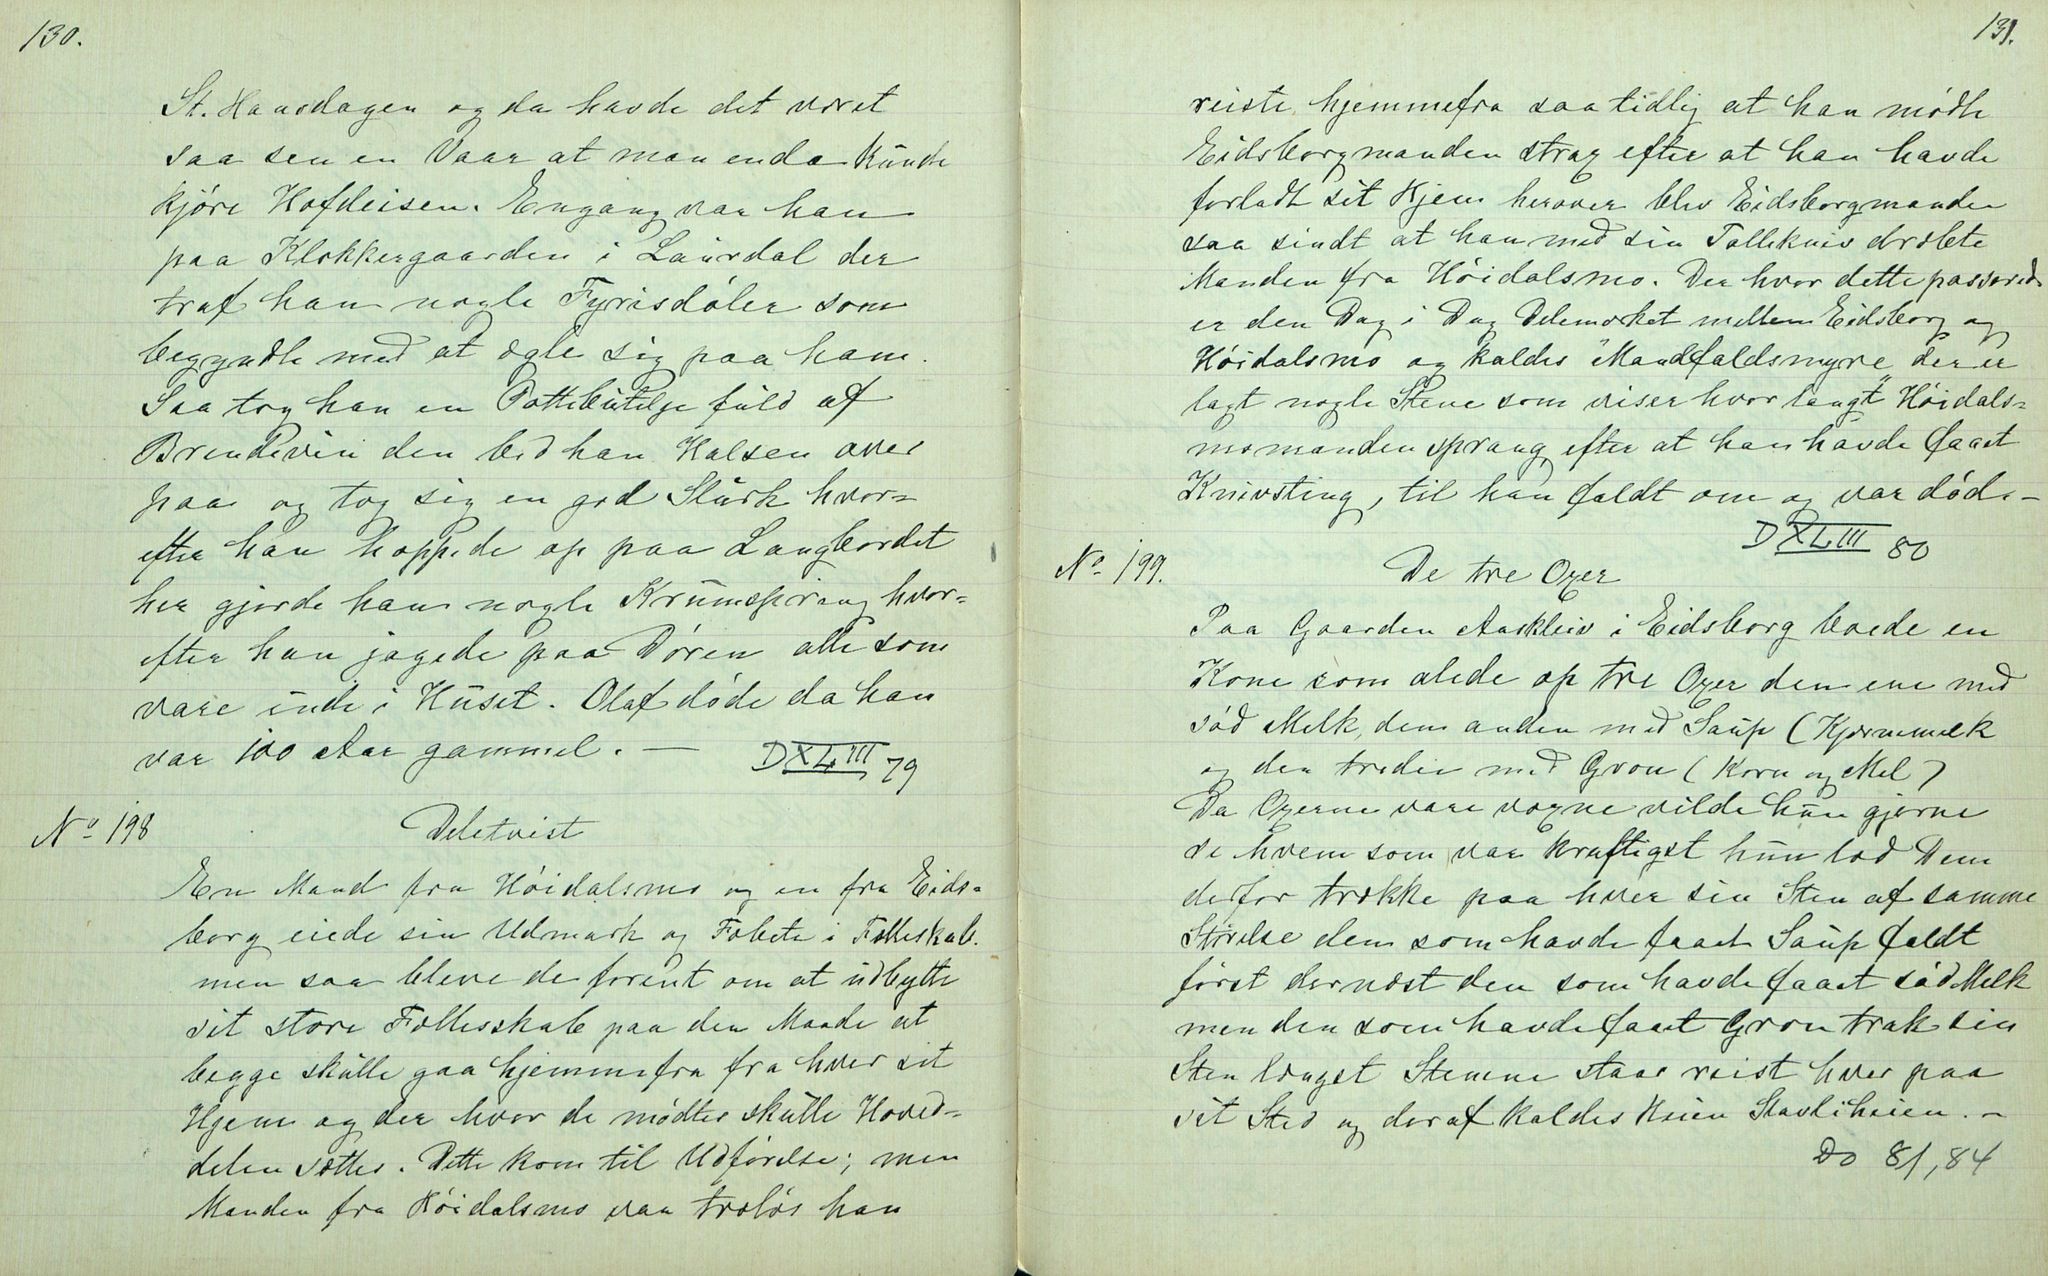 130.
St. Hansdagen og da havde det været
saa sen en Vaar at man enda kunde
kjøre Hofdeisen. Engang var han
paa Klokkergaarden i Laurdal der
traf han nogle Fyrisdøler som
begyndte med at egle sig paa ham.
Saa tog han en Pottebutelje fuld af
Brendevin den bed han Halsen over
paa og tog sig en god Slurk hvor=
efter han hoppede op paa Langbordet
her gjorde han nogle Krumspring hvor=
efter han jagede paa Døren alle som
vare inde i Huset. Olaf døde da han
var 100 Aar gammel. —
D XLIII 79
No 198
Deletvist
En Mand fra Høidalsmo og en fra Eids=
borg eiede sin Udmark og Fæbete i Fælleskab.
men saa bleve de forent om at udbytte
sit store Fællesskab paa den Maade at
begge skulle gaa hjemmefra fra hver sit
Hjem og der hvor de mødtes skulle Hoved=
delen sættes. Dette kom til Udførelse; men
Manden fra Høidalsmo var troløs han
131.
reiste hjemmefra saa tidlig at han mødte
Eidsborgmanden strax efter at han havde
forladt sit Hjem herover blev Eidsborgmanden
saa sindt at han med sin Tollekniv dræbte
Manden fra Høidalsmo. Der hvor dette passerede
er den Dag i Dag Delemærket mellem Eidsborg og
Høidalsmo og kaldes "Mandfaldsmyre" der er
lagt nogle Stene som viser hvor langt Høidals=
momanden sprang efter at han havde faaet
Knivsting, til han faldt om og var død. —
D XLIII 80
No 199.
De tre Oxer
Paa Gaarden Aaskleiv i Eidsborg boede en
Kone som alede op tre Oxer den ene med
sød Melk, den anden med Saup (Kjernemelk
og den tredie med Gron (Korn og Mel)
Da Oxerne vare voxne vilde hun gjerne
se hvem som var kraftigst hun lod Dem
derfor trække paa hver sin Sten af samme
Størelse den som havde faaet Saup faldt
først dernæst den som havde faaet sød Melk
men den som havde faaet Gron trak sin
Sten længst Stenene staar reist hver paa
sit Sted og deraf kaldes Heien Stavliheien. —
Do 81, 84